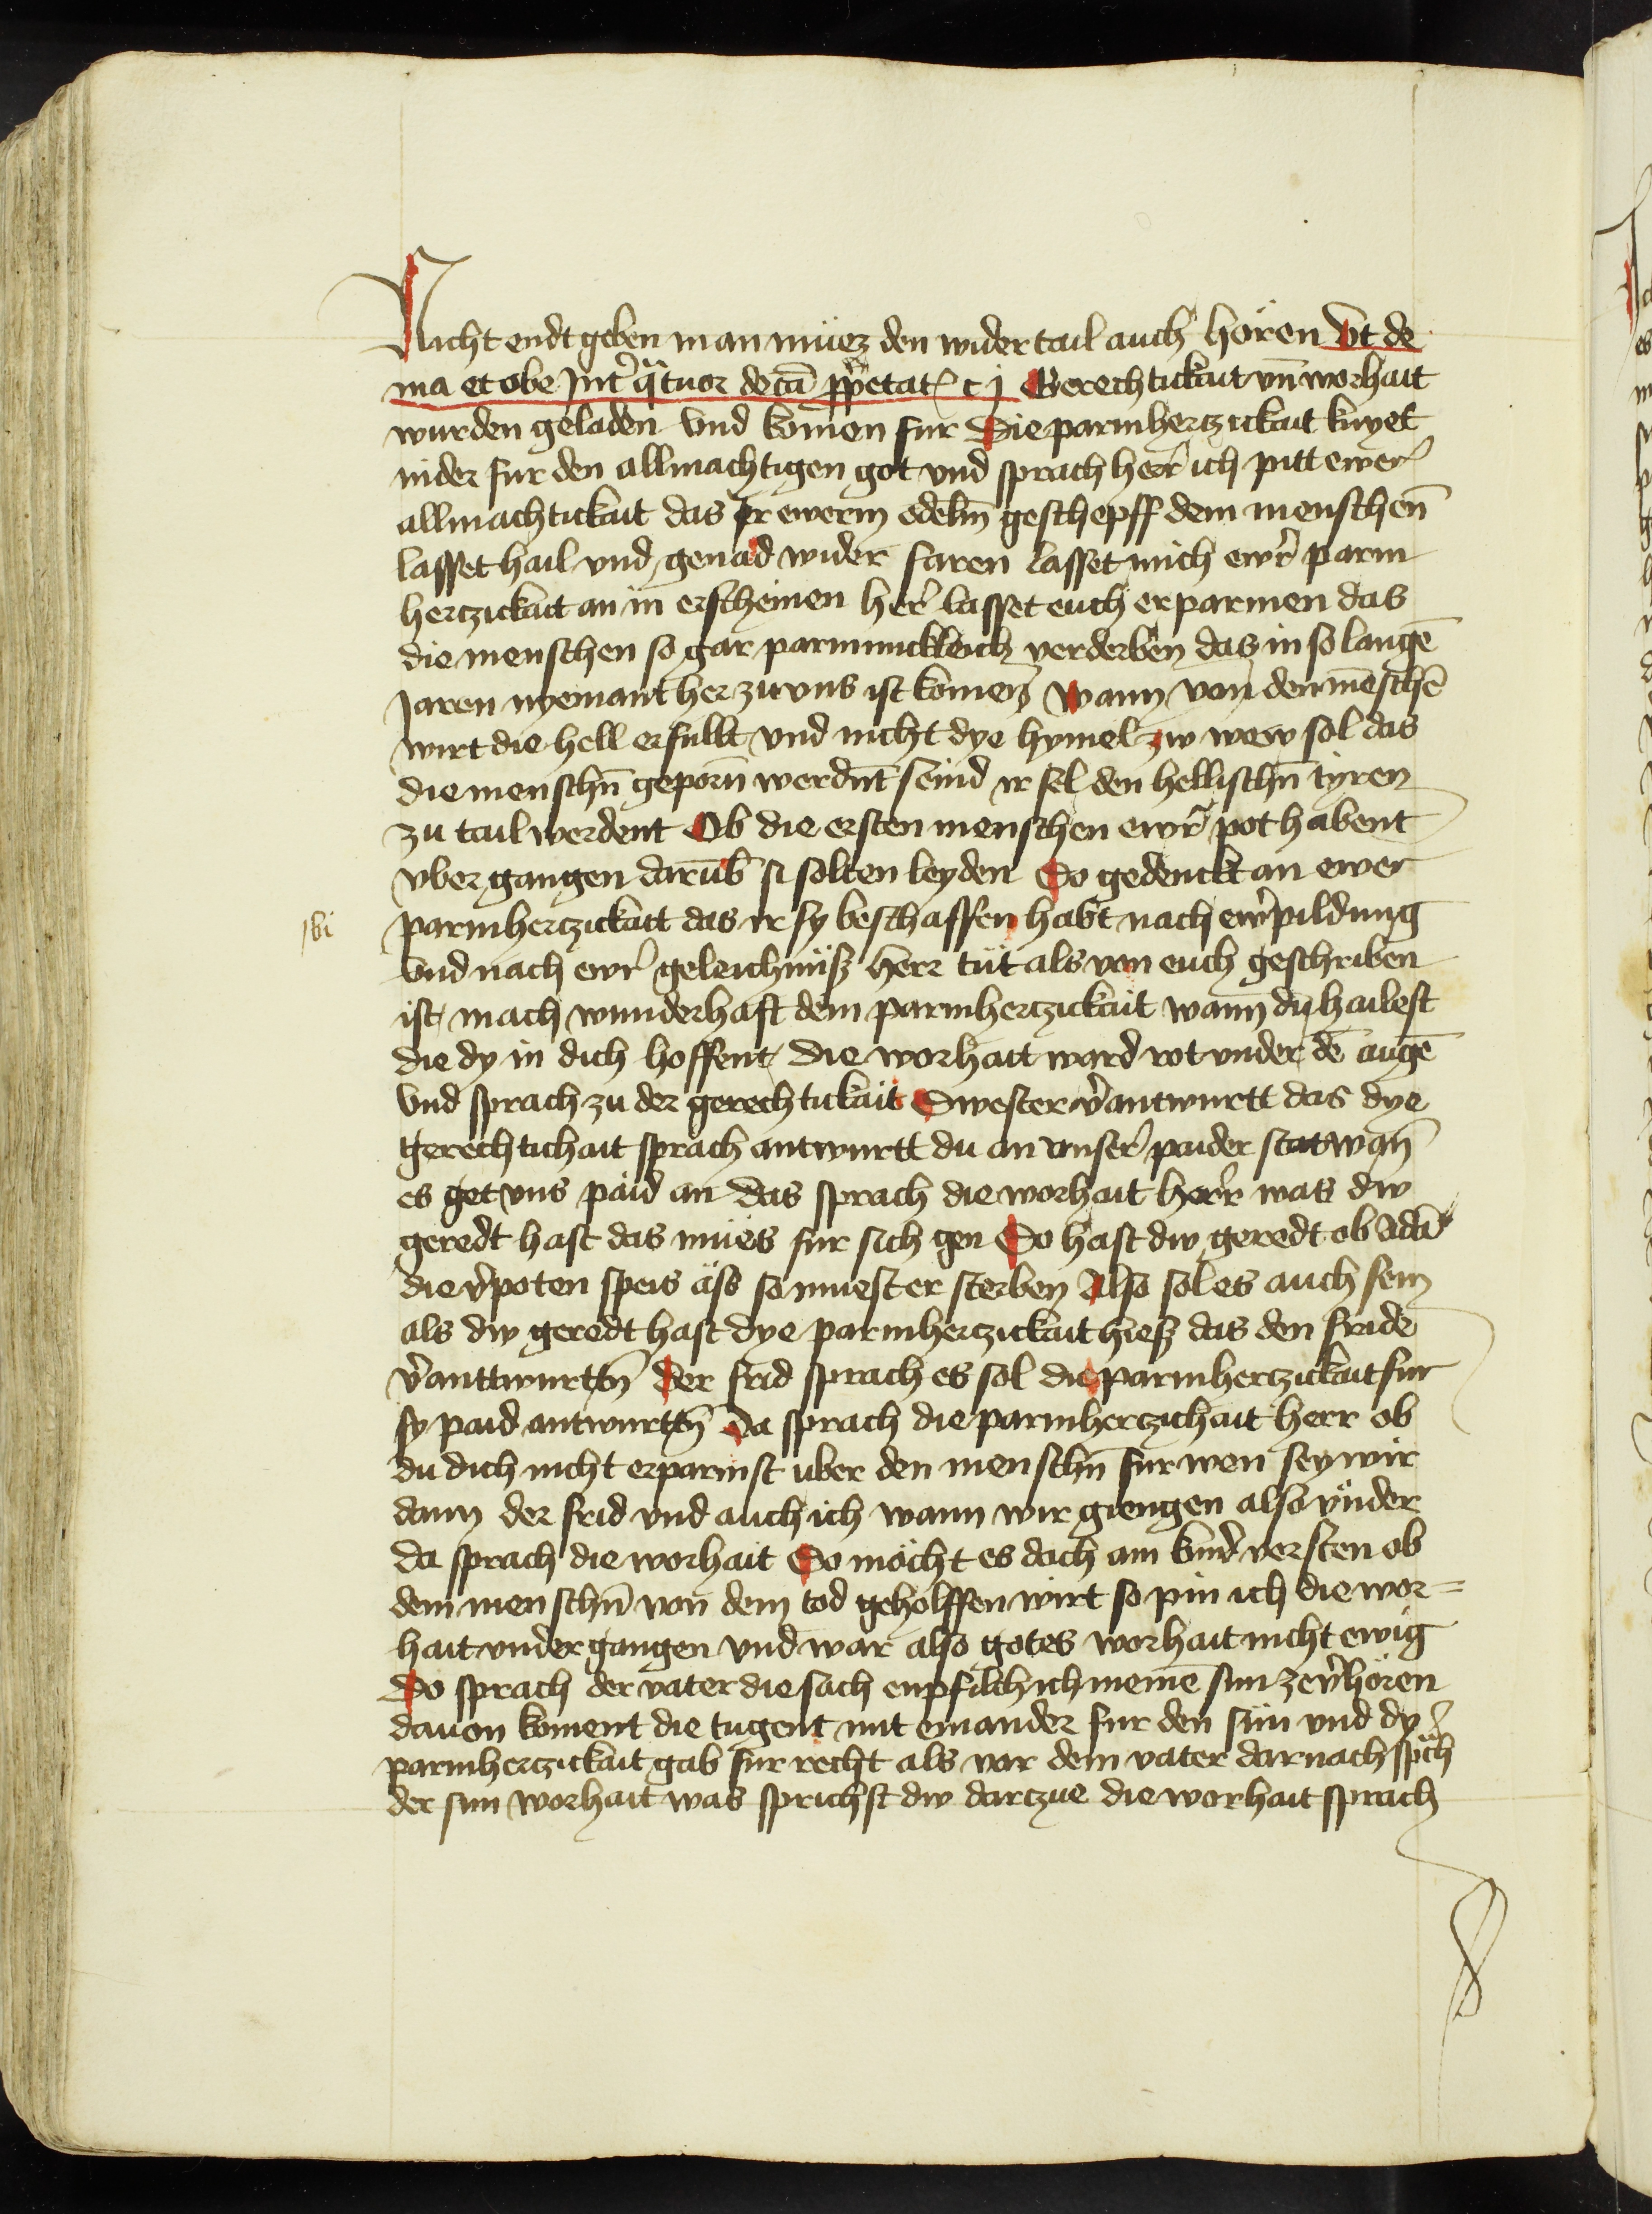 Nicht endt geben man müez den wider tail auch hören vt de
ma et obe Int̉ q̃tuor decā ꝓp̃etatꝫ c j Gerechtickait vn̄ worhait
wurden geladen vnd komen fur Die parmhertzickait knyet
nider fur den allmachtigen got vnd sprach herr̉ ich pitt ewer̉
allmachtickait das Ir ewerm edelm̄ geschepff dem menschen̄
lasset hail vnd genad wider faren lasset mich ewr̉ parm
hertzickait an in erscheinen her̉ lasset euch erparmen das
die menschen so gar parmmickleich verderben das in so langē
Jaren nyemant her zu vns ist komen Wann von den mēschē
wirt die hell erfullt vnd nicht dye hymel zw wew sol das
die menschn̄ geporn̄ werdnt̄ seind ir sel den hellischn̄ tyren
zu tail werdent Ob die ersten menschen ewr̉ pot habent
vber gangen darūb si solten leyden So gedenckt an ewer
parmhertzickait das ir sy beschaffen habt nach ewr̉ pildung
vnd nach ewr̉ geleichnüß herr tüt als von euch geschriben
ist mach wunderhaft dein parmhertzickait wann du hailest
die dy in dich hoffent Die worhait ward rot vnder dē augē
vnd sprach zu der gerechtickait Swester v̉antwurtt das dye
gerechtichait sprach antwurtt du an vnser̉ paider stat wan̄
es get vns paid an das sprach die worhait herr̉ was dw
geredt hast das mües fur sich gen So hast dw geredt ob Adā
die v̉poten speis äß so muest er sterben Also sol es auch sein
als dw geredt hast dye parmhertzickait hieß das den fride
v̉anttwurttn̄ Der frid sprach es sol die parmhertzickait fur
sy paid antwurttn̄ Da sprach die parmhertzichait herr ob
du dich nicht erparmst uber den menschn̄ fur wen sey wir
dann der frid vnd auch ich wann wir giengen also vnder
da sprach die worhait So möcht es dach am kind̉ versten ob
dem menschn̄ von dem tod geholffen wirt so pin ich die wor=
hait vnder gangen vnd war also gotes worhait nicht ewig
Do sprach der vater die sach enpfilch ich meinē sun ze v̉hören
dauon koment die tugent mit einander fur den sün vnd dy
parmhertzickait gab fur recht als vor dem vater darnach sp̃ch
der sun worhait was sprichst dw dartzue die worhait sprach